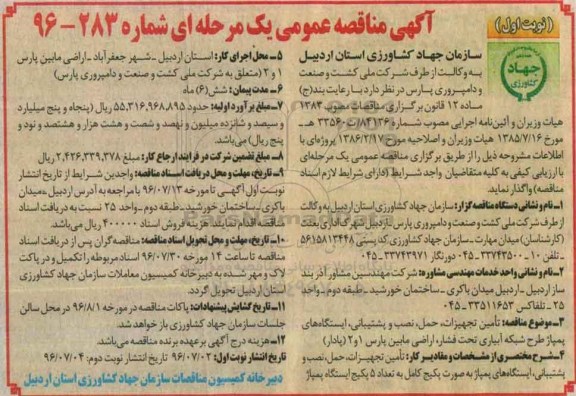 (نوبت اول)
آگهی مناقصه عمومی یک مرحله ای شماره ۲۸۳-۹۶
جهاد
کشاورزی
سازمان جهاد کشاورزی استان اردبیل
به وکالت از طرف شرکت ملی کشت و صنعت
و دامپروری پارس در نظر دارد با رعایت بند (ج)
ماده ۱۲ قانون برگزاری مناقصات مصوب ۱۳۸۳
هیات وزیران و آئین‌نامه اجرایی مصوب شماره ۸۴۱۳۶/ت۳۳۵۶۰ هـ
مورخ ۱۳۸۵/۷/۱۶ هیات وزیران و اصلاحیه مورخ ۱۳۸۶/۲/۱۷ پروژه‌ای با
اطلاعات مشروحه ذیل را از طریق برگزاری مناقصه عمومی یک مرحله‌ای
با ارزیابی کیفی به کلیه متقاضیان واجد شرایط (دارای شرایط لازم اسناد
مناقصه) واگذار نماید.
۱- نام و نشانی دستگاه مناقصه‌گزار: سازمان جهاد کشاورزی استان اردبیل به وکالت
از طرف شرکت ملی کشت و صنعت و دامپروری پارس - اردبیل شهرک اداری بعثت
(کارشناسان) میدان مهارت - سازمان جهاد کشاورزی کد پستی ۵۶۱۵۸۱۳۴۴۸
- تلفن ۱۰-۳۳۷۴۳۵۰۰-۰۴۵ دورنگار ۳۳۷۴۳۹۷۱-۰۴۵
۲- نام و نشانی واحد خدمات مهندسی مشاوره: شرکت مهندسین مشاور آذر بند
ساز اردبیل - اردبیل میدان باکری - ساختمان خورشید - طبقه دوم - واحد
۲۵ - تلفاکس ۳۳۵۱۱۶۵۳-۰۴۵
۳- موضوع مناقصه: تأمین تجهیزات، حمل، نصب و پشتیبانی، ایستگاه‌های
پمپاژ طرح شبکه آبیاری تحت فشار، اراضی مابین پارس ۱ و ۲ (پادار)
۴- شرح مختصری از مشخصات و مقادیر کار: تأمین تجهیزات، حمل، نصب و
پشتیبانی، ایستگاه‌های پمپاژ به صورت پکیج کامل به تعداد ۵ پکیج ایستگاه پمپاژ
۵- محل اجرای کار: استان اردبیل - شهر جعفرآباد - اراضی مابین پارس
۱ و ۲ (متعلق به شرکت ملی کشت و صنعت و دامپروری پارس)
۶- مدت پیمان: شش (۶) ماه
۷- مبلغ برآورد اولیه: حدود ۵۵,۳۱۶,۹۶۸,۸۹۵ ریال (پنجاه و پنج میلیارد
و سیصد و شانزده میلیون و نهصد و شصت و هشت هزار و هشتصد و نود و
پنج ریال) می‌باشد.
۸- مبلغ تضمین شرکت در فرآیند ارجاع کار: مبلغ ۲,۴۲۶,۳۳۹,۳۷۸ ریال
۹- تاریخ، مهلت و محل دریافت اسناد مناقصه: واجدین شرایط از تاریخ انتشار
نوبت اول آگهی تا مورخه ۹۶/۰۷/۱۳ با مراجعه به آدرس اردبیل، میدان
باکری - ساختمان خورشید - طبقه دوم - واحد ۲۵ نسبت به دریافت اسناد
مناقصه اقدام نمایند. هزینه فروش اسناد ۴۰۰۰۰۰ ریال می‌باشد.
۱۰- تاریخ، مهلت و محل تحویل اسناد مناقصه: مناقصه‌گران پس از دریافت اسناد
مناقصه تا ساعت ۱۴ مورخه ۹۶/۰۷/۳۰ اسناد مربوطه را تکمیل و در پاکت
لاک و مهر شده به دبیرخانه کمیسیون معاملات سازمان جهاد کشاورزی
استان اردبیل تحویل گردد.
۱۱- تاریخ گشایش پیشنهادات: پاکات مناقصه در مورخه ۹۶/۸/۱ در محل سالن
جلسات سازمان جهاد کشاورزی باز خواهد شد.
۱۲- هزینه درج آگهی بر عهده برنده مناقصه می‌باشد.
تاریخ انتشار نوبت اول: ۹۶/۰۷/۰۲ تاریخ انتشار نوبت دوم: ۹۶/۰۷/۰۴
دبیرخانه کمیسیون مناقصات سازمان جهاد کشاورزی استان اردبیل